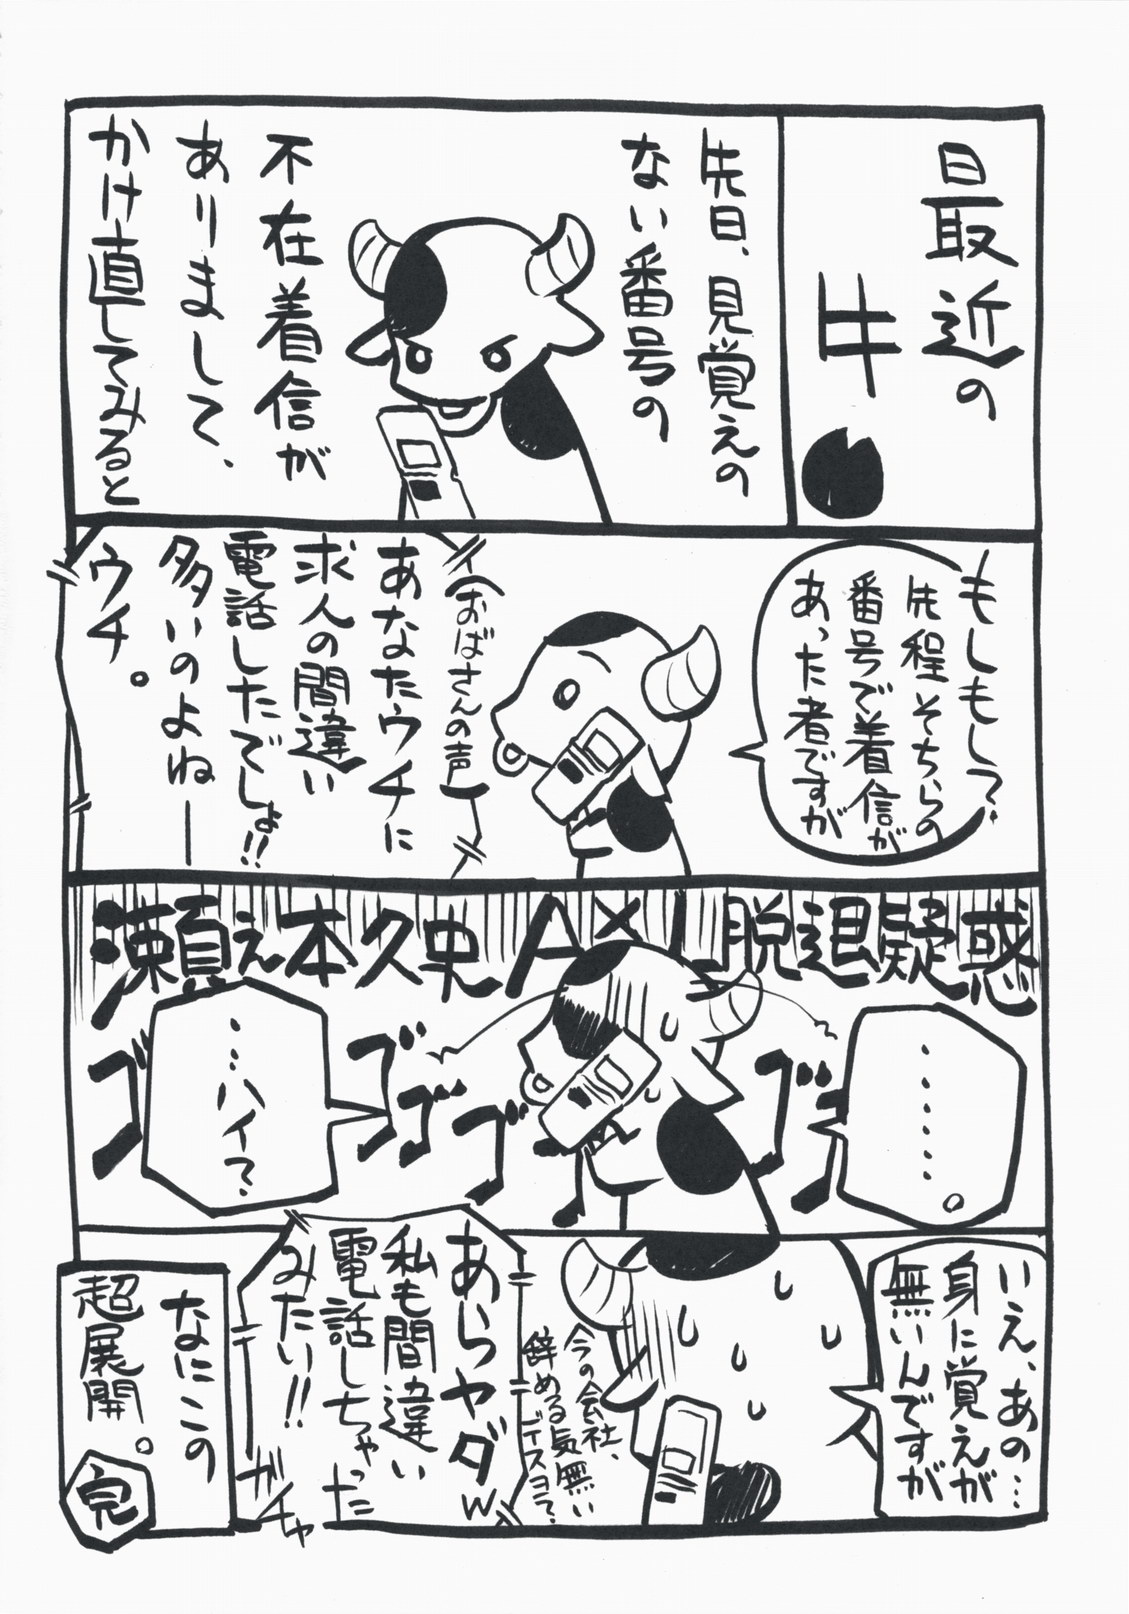 最近の
牛
先日、見覚えの
ない番号の
不在着信が
ありまして、
かけ直してみると
もしもし?
先程そちらの
番号で着信が
あった者ですが
(おばさんの声)
あなたウチに
求人の間違い
電話したでしょ!!
多いのよねー
ウチ。
瀬え本久史AXL脱退疑惑
……。
ゴゴゴゴゴゴ
…ハイ?
いえ、あの…
身に覚えが
無いんですが
今の会社、
辞める気無い
ディスヨ?
あらヤダw
私も間違い
電話しちゃった
みたい!!
ガチャ
なにこの
超展開。
完